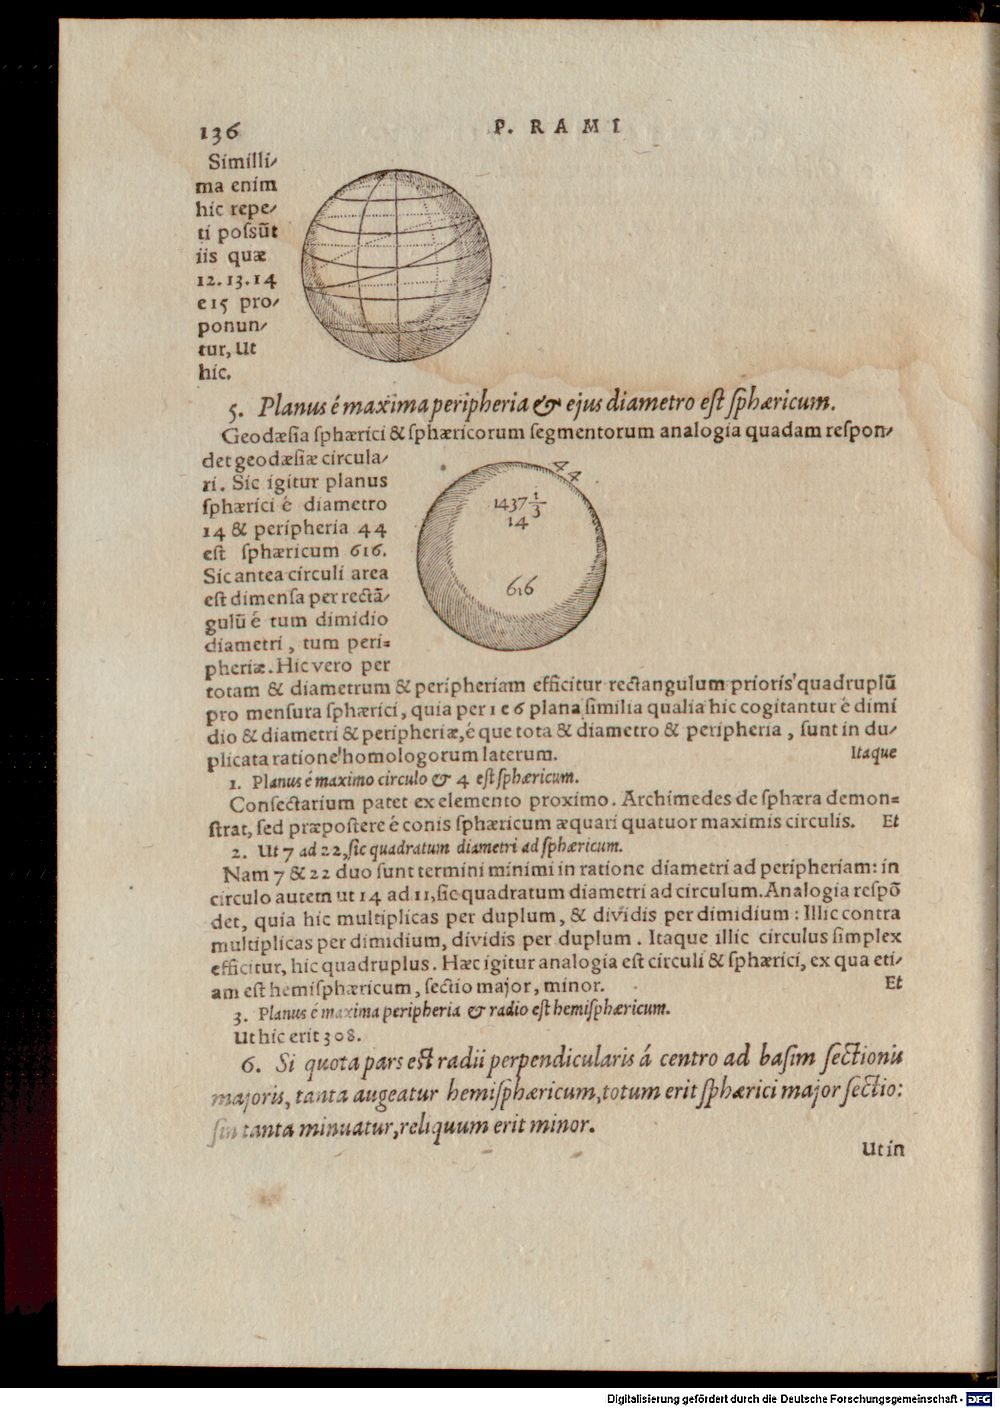 136
P. RAMI
Similli-
ma enim
hic repe-
ti possũt
iis quæ
12.13.14
e 15 pro-
ponun-
tur, Ut
hic.
5. Planus é maxima peripheria & ejus diametro est sphæricum.
Geodæsia sphærici & sphæricorum segmentorum analogia quadam respon-
det geodæsiæ circula-
ri. Sic igitur planus
sphærici é diametro
14 & peripheria 44
est sphæricum 616.
Sic antea circuli area
est dimensa per rectã-
gulũ é tum dimidio
diametri, tum peri-
pheriæ. Hic vero per
44
1437 1/3
14
616
totam & diametrum & peripheriam efficitur rectangulum prioris quadruplũ
pro mensura sphærici, quia per 1 e 6 plana similia qualia hic cogitantur é dimi
dio & diametri & peripheriæ, é que tota & diametro & peripheria, sunt in du-
plicata ratione homologorum laterum. Itaque
1. Planus é maximo circulo & 4 est sphæricum.
Consectarium patet ex elemento proximo. Archimedes de sphæra demon-
strat, sed præpostere é conis sphæricum æquari quatuor maximis circulis. Et
2. Ut 7 ad 22, sic quadratum diametri ad sphæricum.
Nam 7 & 22 duo sunt termini minimi in ratione diametri ad peripheriam: in
circulo autem ut 14 ad 11, sic quadratum diametri ad circulum. Analogia respõ
det, quia hic multiplicas per duplum, & dividis per dimidium: Illic contra
multiplicas per dimidium, dividis per duplum. Itaque illic circulus simplex
efficitur, hic quadruplus. Hæc igitur analogia est circuli & sphærici, ex qua eti-
am est hemisphæricum, sectio major, minor. Et
3. Planus é maxima peripheria & radio est hemisphæricum.
Ut hic erit 308.
6. Si quota pars est radii perpendicularis á centro ad basim sectionis
majoris, tanta augeatur hemisphæricum, totum erit sphærici major sectio:
sin tanta minuatur, reliquum erit minor.
Ut in
Digitalisierung gefördert durch die Deutsche Forschungsgemeinschaft - DFG